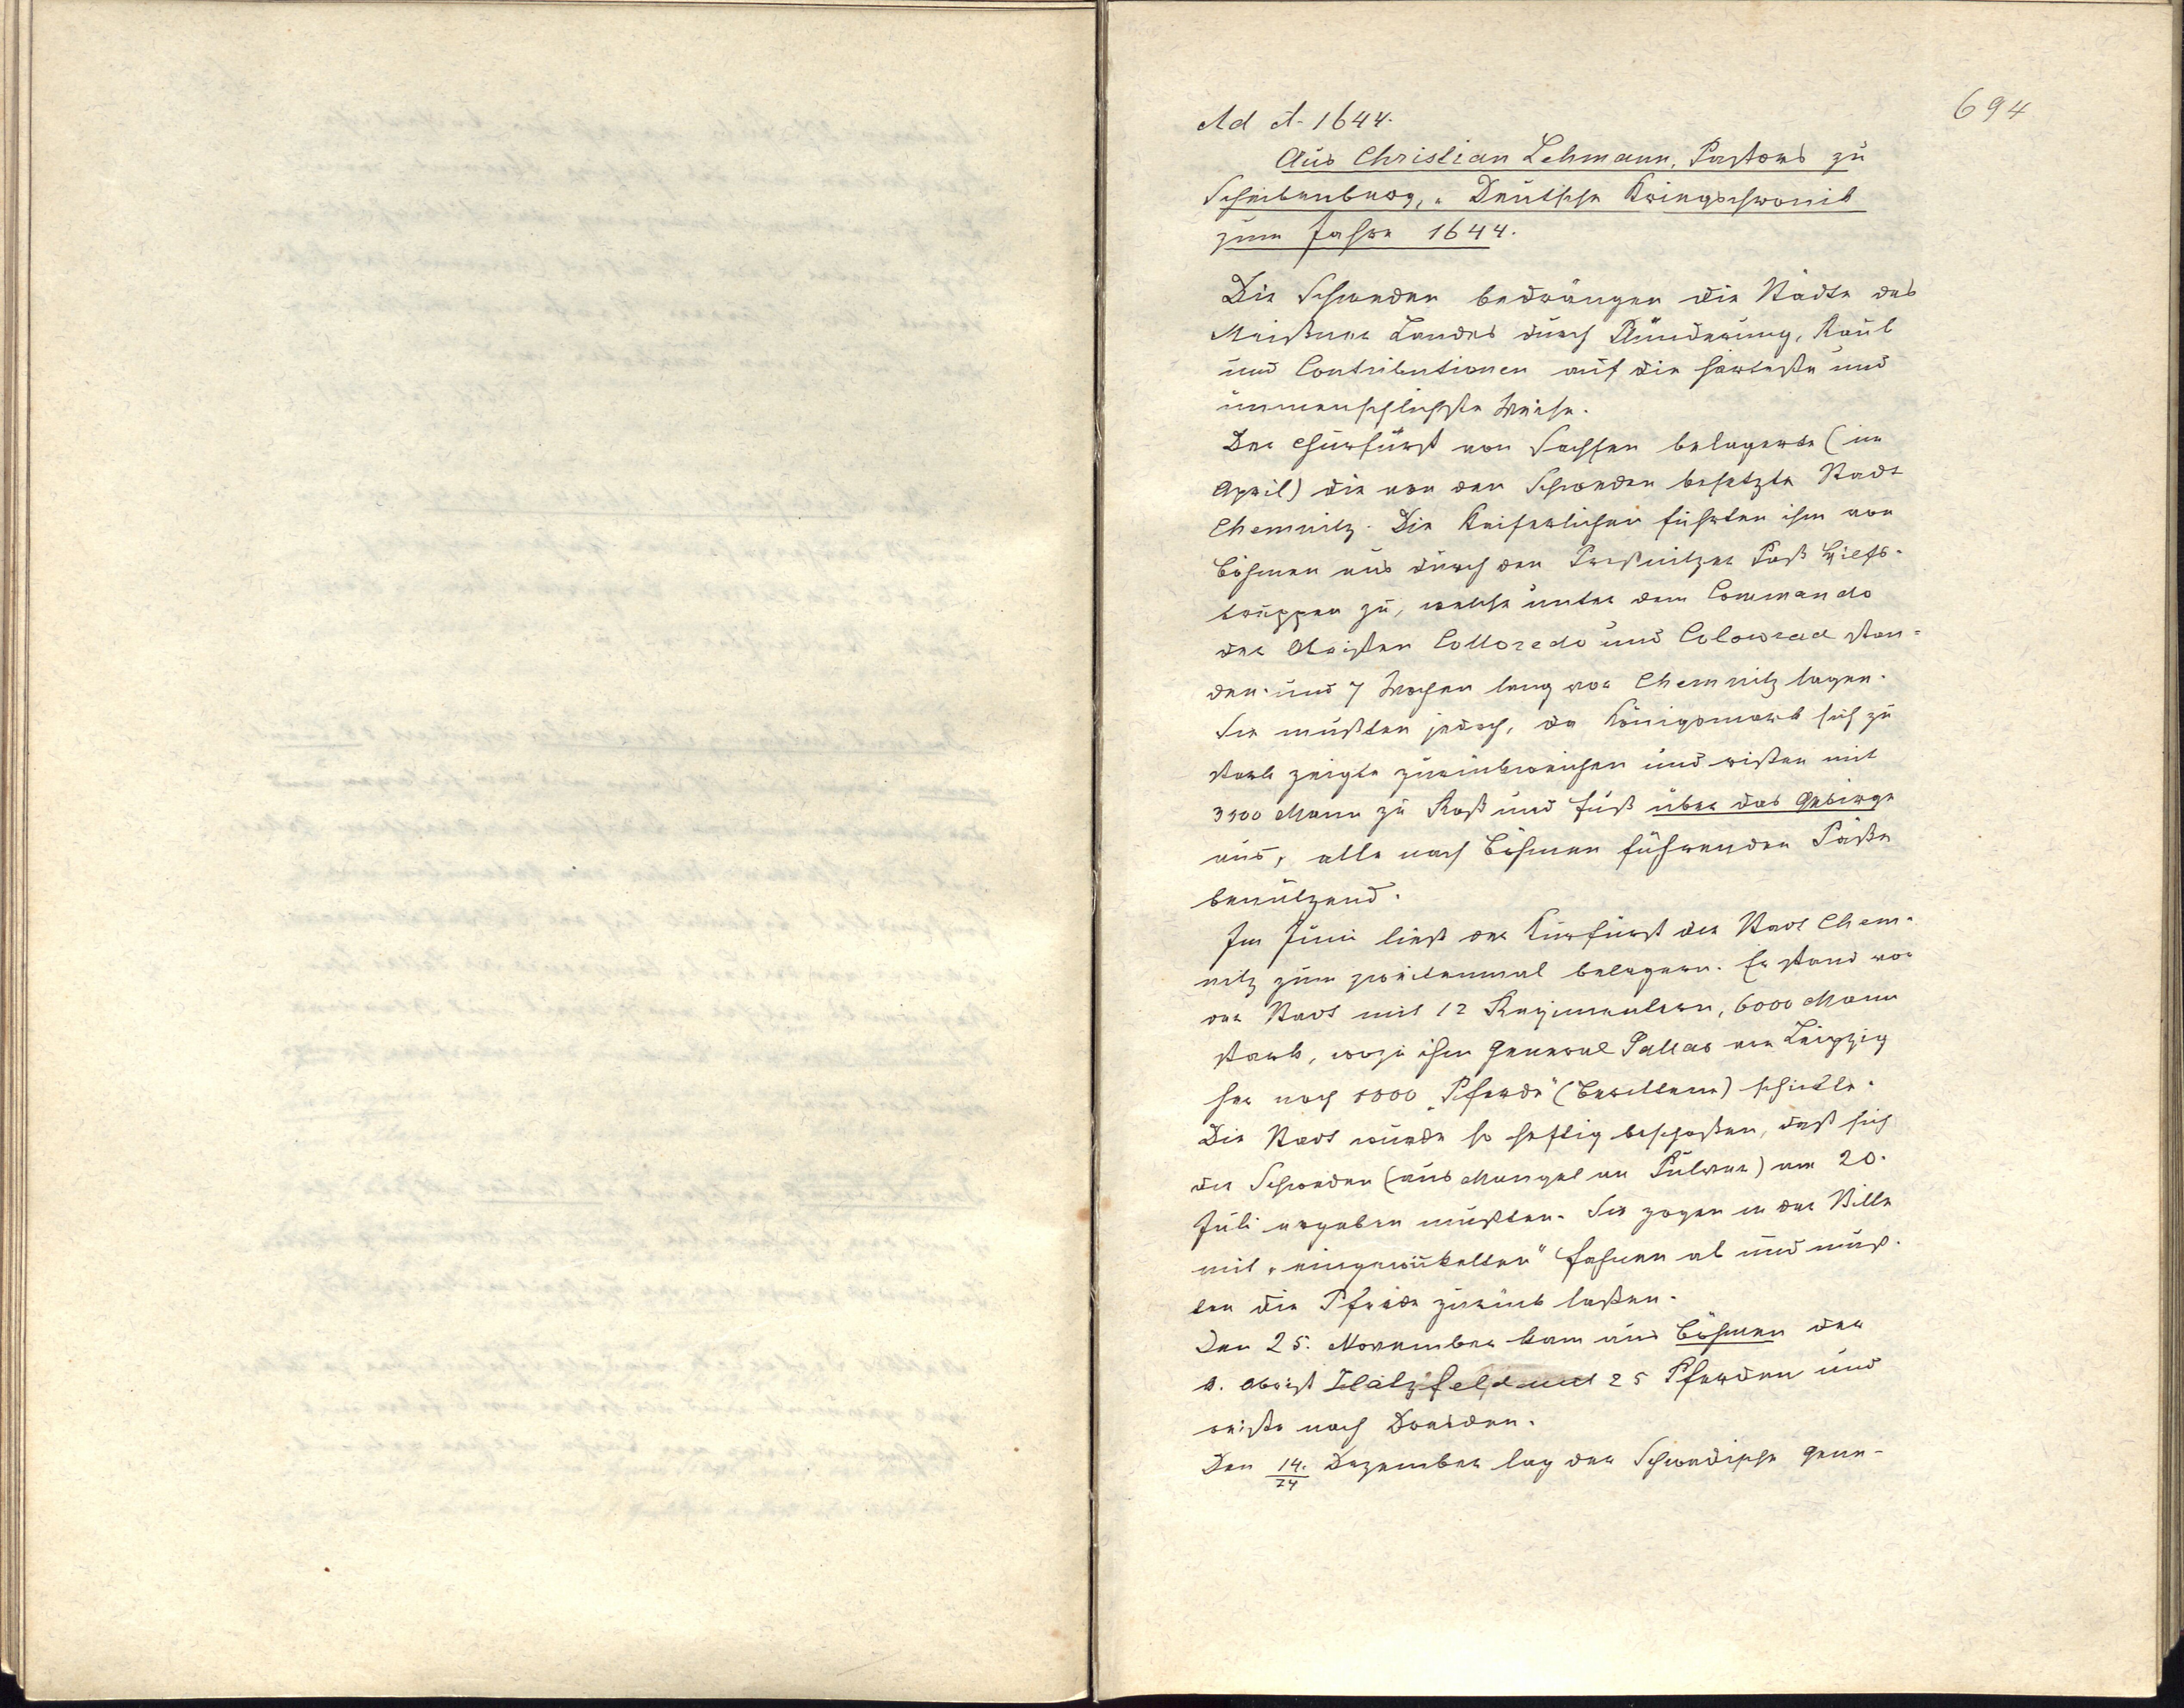 694
Ad A. 1644.
Aus Christian Lehmann, Pastors zu
Scheibenberg, „Deutsche Kriegschronik
zum Jahre 1644.
Die Schweden bedrängen die Städte des
Meißner Landes durch Plünderung, Raub
und Contributionen auf die härteste und
unmenschlichste Weise.
Der Churfürst von Sachsen belagerte (im
April) die von den Schweden besetzte Stadt
Chemnitz. Die Kaiserlichen führten ihm von
Böhmen aus durch den Preßnitzer Paß Hilfs-
truppen zu, welche unter dem Commando
der Obristen Colloredo und Colowrad stan-
den und 7 Wochen lang vor Chemnitz lagen.
Sie mußten jedoch, da Königsmark sich zu
stark zeigte zurückweichen und rißen mit
3500 Mann zu Roß und Fuß über das Gebirge
aus, alle nach Böhmen führenden Päße
benützend.
Im Juni ließ der Kurfürst die Stadt Chem-
nitz zum zweitenmal belagern. Er stand vor
der Stadt mit 12 Regimentern, 6000 Mann
stark, wozu ihm General Gallas von Leipzig
her noch 1000 „Pferde“ (Berittene) schickte.
Die Stadt wurde so heftig beschoßen, daß sich
die Schweden (aus Mangel an Pulver) am 20.
Juli ergeben mußten. Sie zogen in der Stille
mit „eingewickelten“ Fahnen ab und muß-
ten die Pferde zurück laßen.
Den 25. November kam aus Böhmen der
k. Obrist Hatzfeld mit 25 Pferden und
reiste nach Dresden.
Den 14./24 Dezember lag der Schwedische Gene-